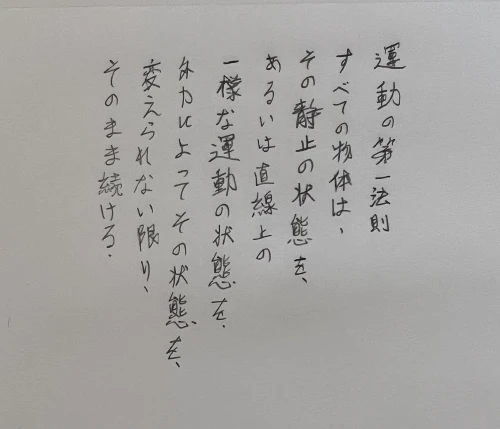 運動の第一法則
すべての物体は、
その静止の状態を、
あるいは直線上の
一様な運動の状態を、
外力によってその状態を、
変えられない限り、
そのまま続ける.